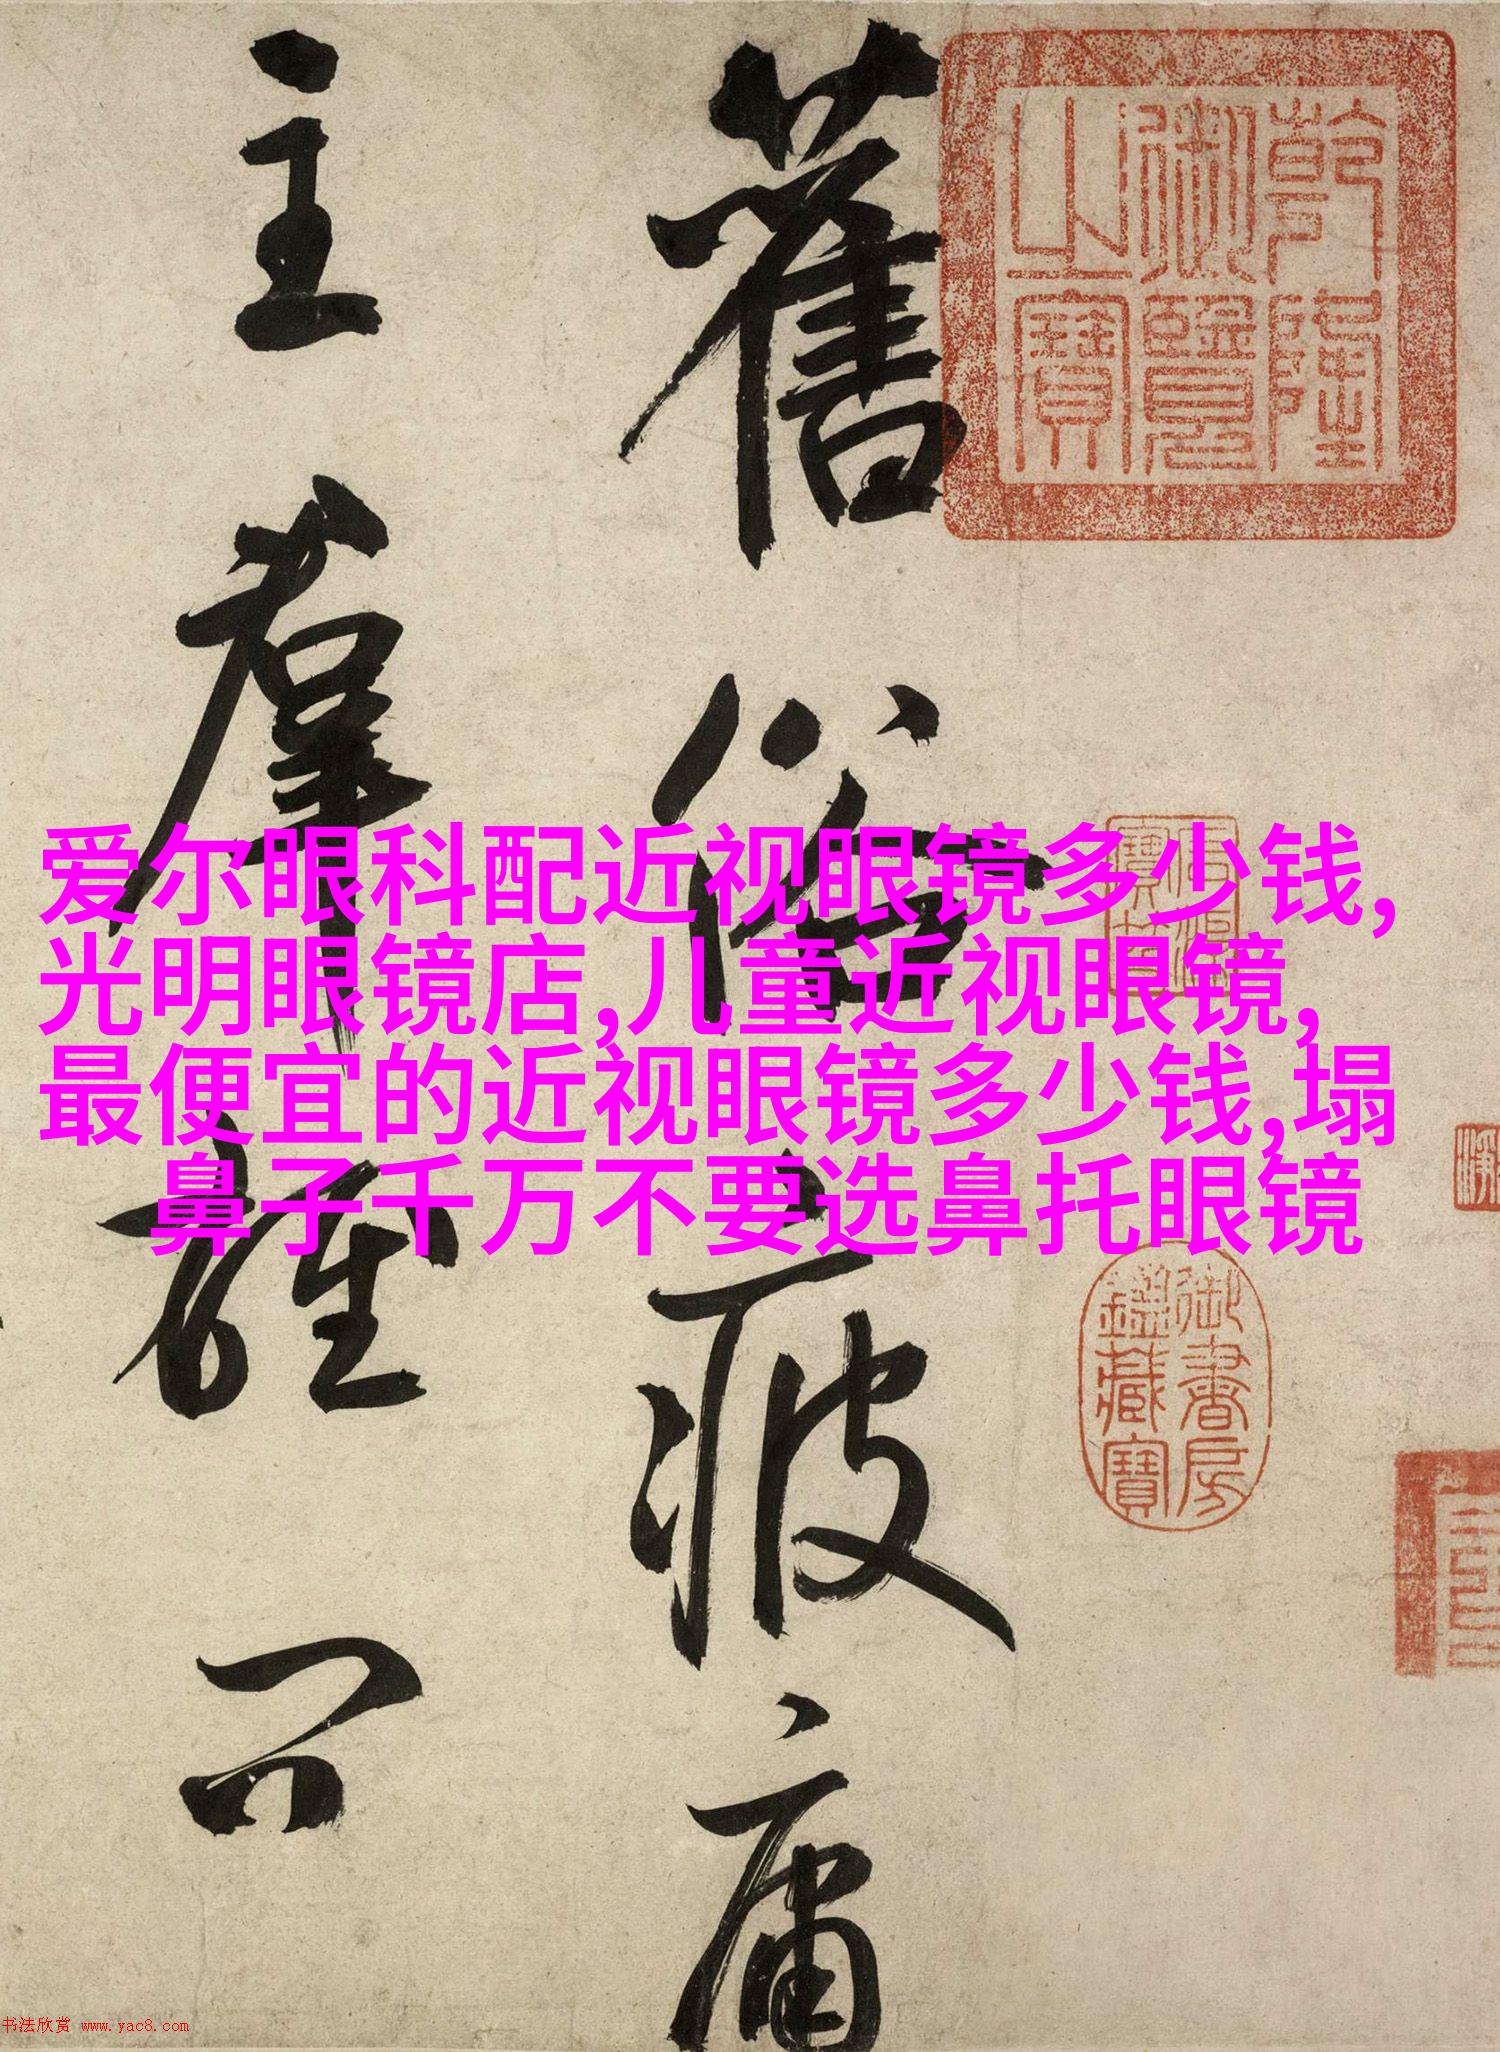 爱尔眼科配近视眼镜多少钱,
光明眼镜店,儿童近视眼镜,
最便宜的近视眼镜多少钱,塌
鼻子千万不要选鼻托眼镜
舊俗疲庸
主羣雄只
乾隆
御覽
之寶
御書房
鑑藏寶
书法欣赏 www.yac8.com